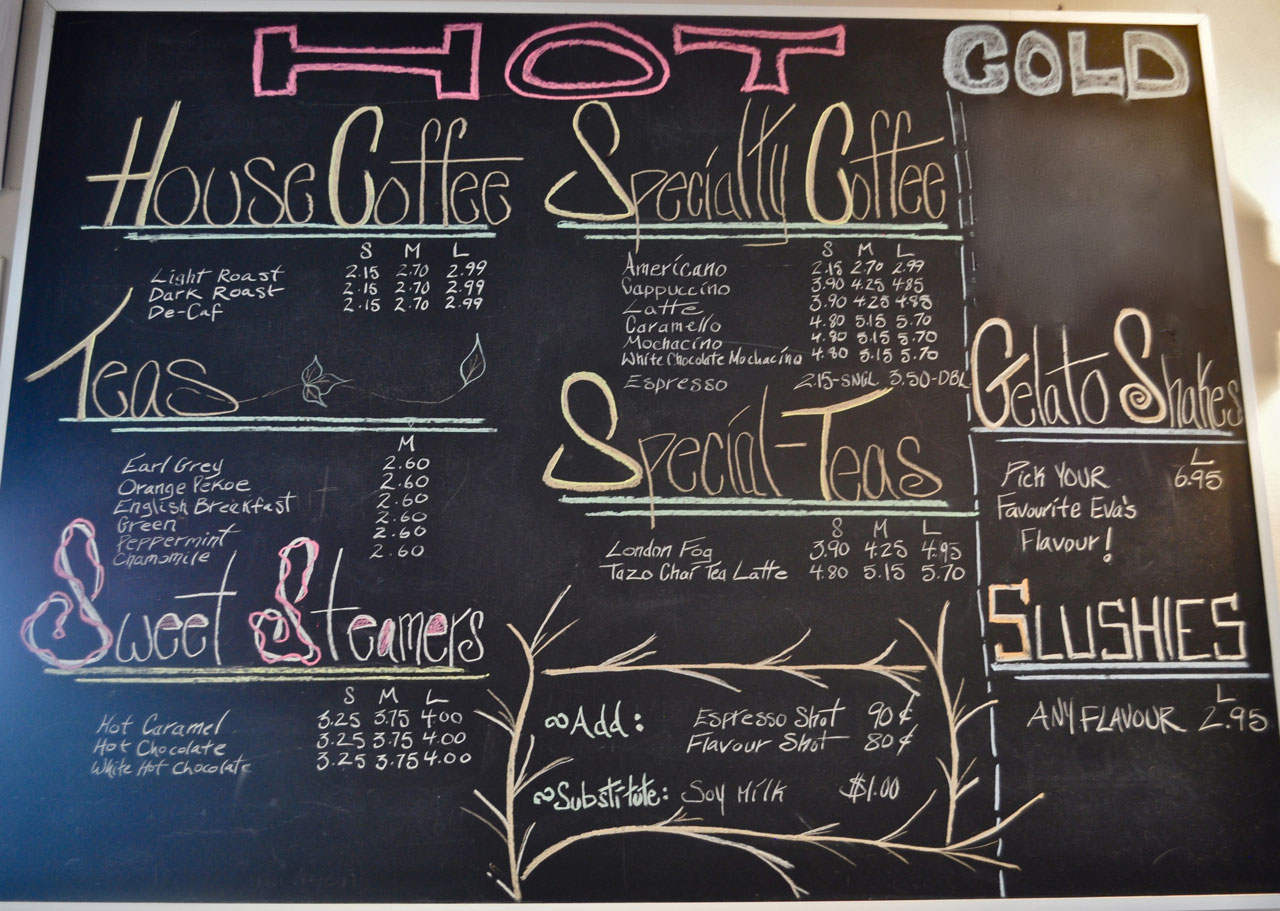 HOT
House Coffee
S M L
Light Roast 2.15 2.70 2.99
Dark Roast 2.15 2.70 2.99
De-Caf 2.15 2.70 2.99
Teas
M
Earl Grey 2.60
Orange Pekoe 2.60
English Breakfast 2.60
Green 2.60
Peppermint 2.60
Chamomile 2.60
Sweet Steamers
S M L
Hot Caramel 3.25 3.75 4.00
Hot Chocolate 3.25 3.75 4.00
White Hot Chocolate 3.25 3.75 4.00
Specialty Coffee
S M L
Americano 2.15 2.70 2.99
Cappuccino 3.90 4.25 4.85
Latte 3.90 4.25 4.95
Caramello 4.80 5.15 5.70
Mochacino 4.80 5.15 5.70
White Chocolate Mochacino 4.80 5.15 5.70
Espresso 2.15-SNGL 3.50-DBL
Special-Teas
S M L
London Fog 3.90 4.25 4.95
Tazo Chai Tea Latte 4.80 5.15 5.70
∞Add: Espresso Shot 90¢
Flavour Shot 80¢
∞Substitute: Soy Milk $1.00
COLD
Gelato Shakes
L
Pick YOUR 6.95
Favourite Eva's
Flavour!
SLUSHIES
L
ANY FLAVOUR 2.95